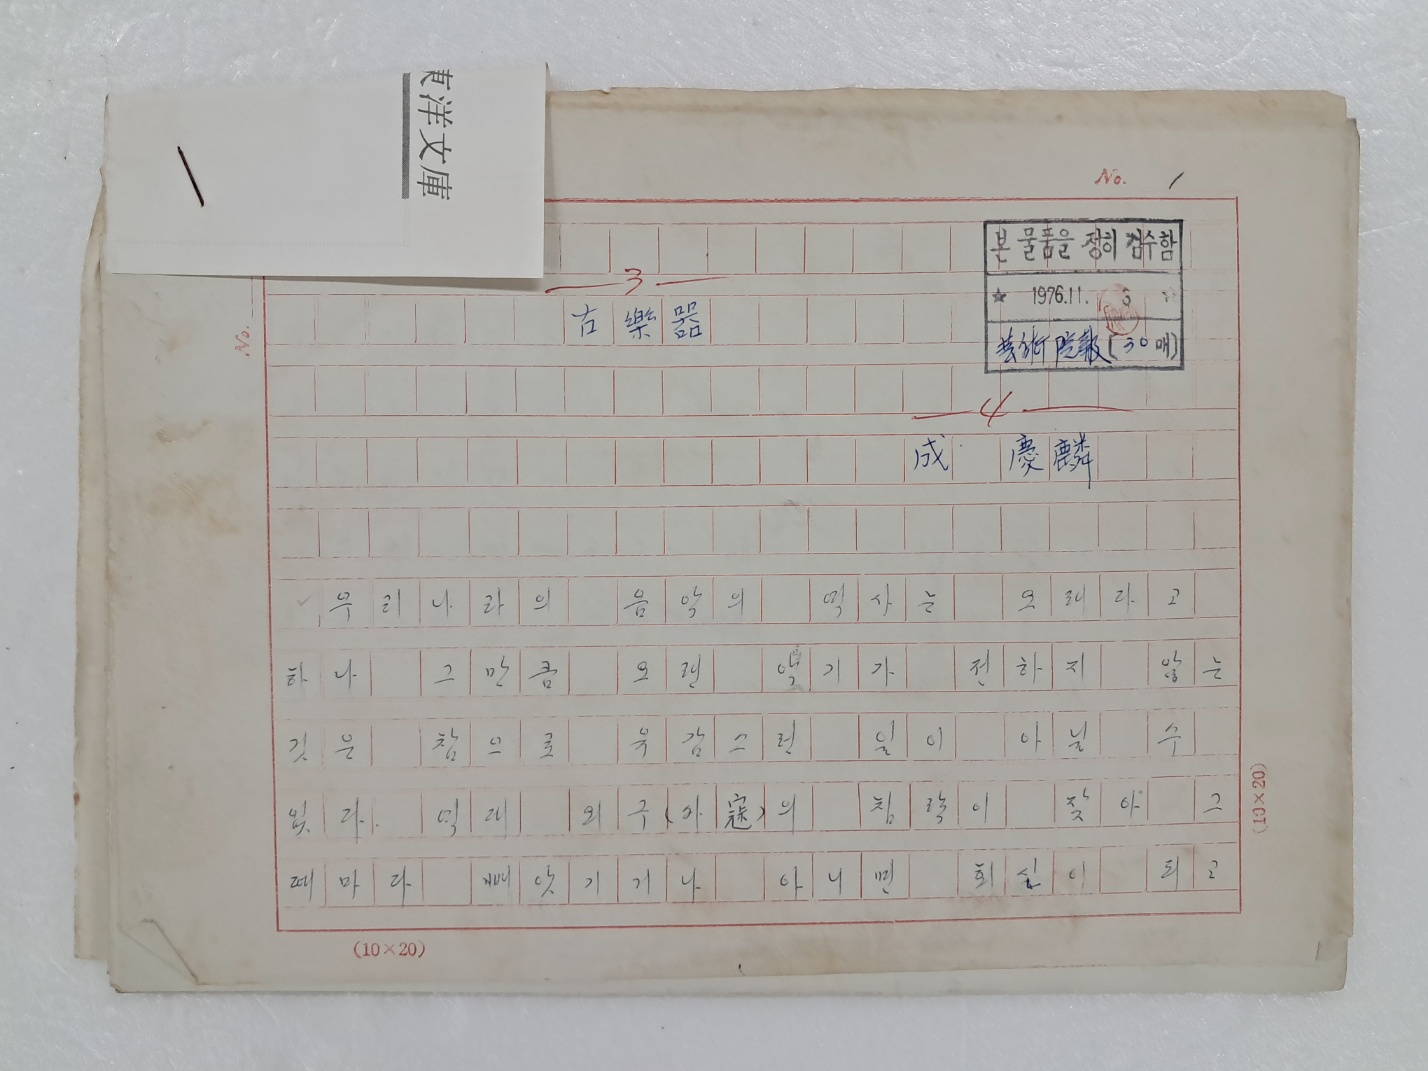 東洋文庫
No. 1
본 물품을 정히 검수함
1976.11. 3
芸術院報(30매)
3
古樂器
4
成 慶麟
No.
우리나라의 음악의 역사는 오래라고
하나 그만큼 오랜 악기가 전하지 않는
것은 참으로 유감스런 일이 아닐 수
없다. 역대 외구(外寇)의 침략이 잦아 그
때마다 빼앗기거나 아니면 회실이 되고
(10×20)
(10×20)